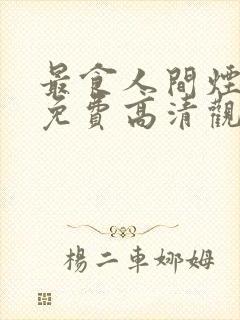 最食人間煙
免費高清觀
楊二車娜姆